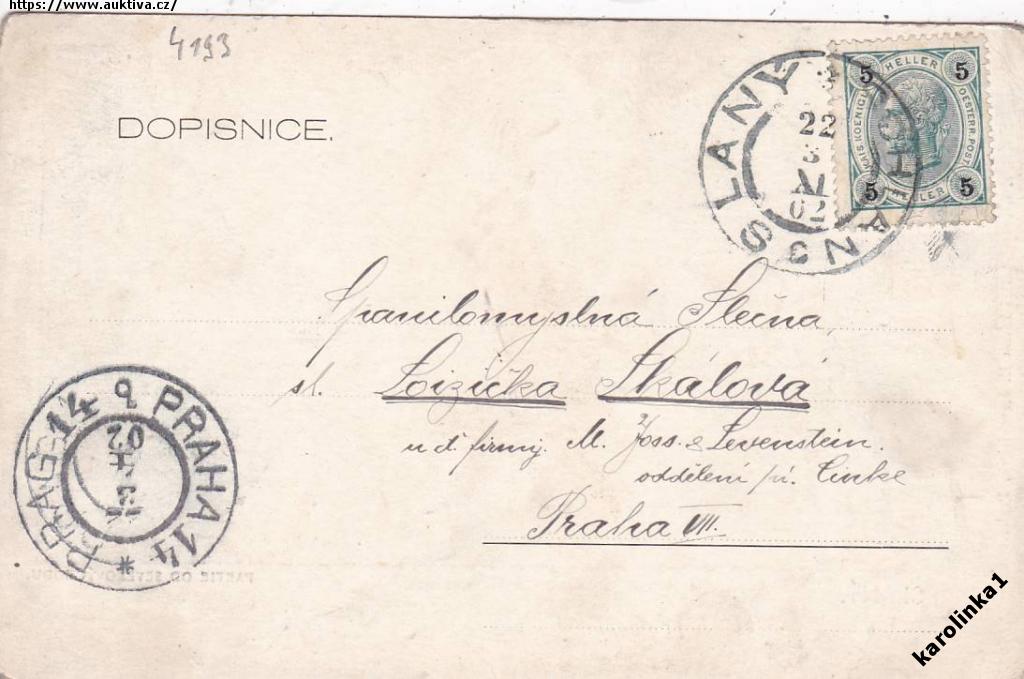 https://www.auktiva.cz/
4193
DOPISNICE.
5 HELLER 5
KAIS. KOENIGL. OESTERR. POST.
5 HELLER 5
SLANÝ SCHLAN
22
02
3
Spanilomyslná Slečna,
sl. Loizička Skálová
u ct. firmy. M. Joss. & Levenstein.
oddělení p.
Praha VII.
PRAHA 14
PRAG 14
02
PARTIE OD
karolinka1